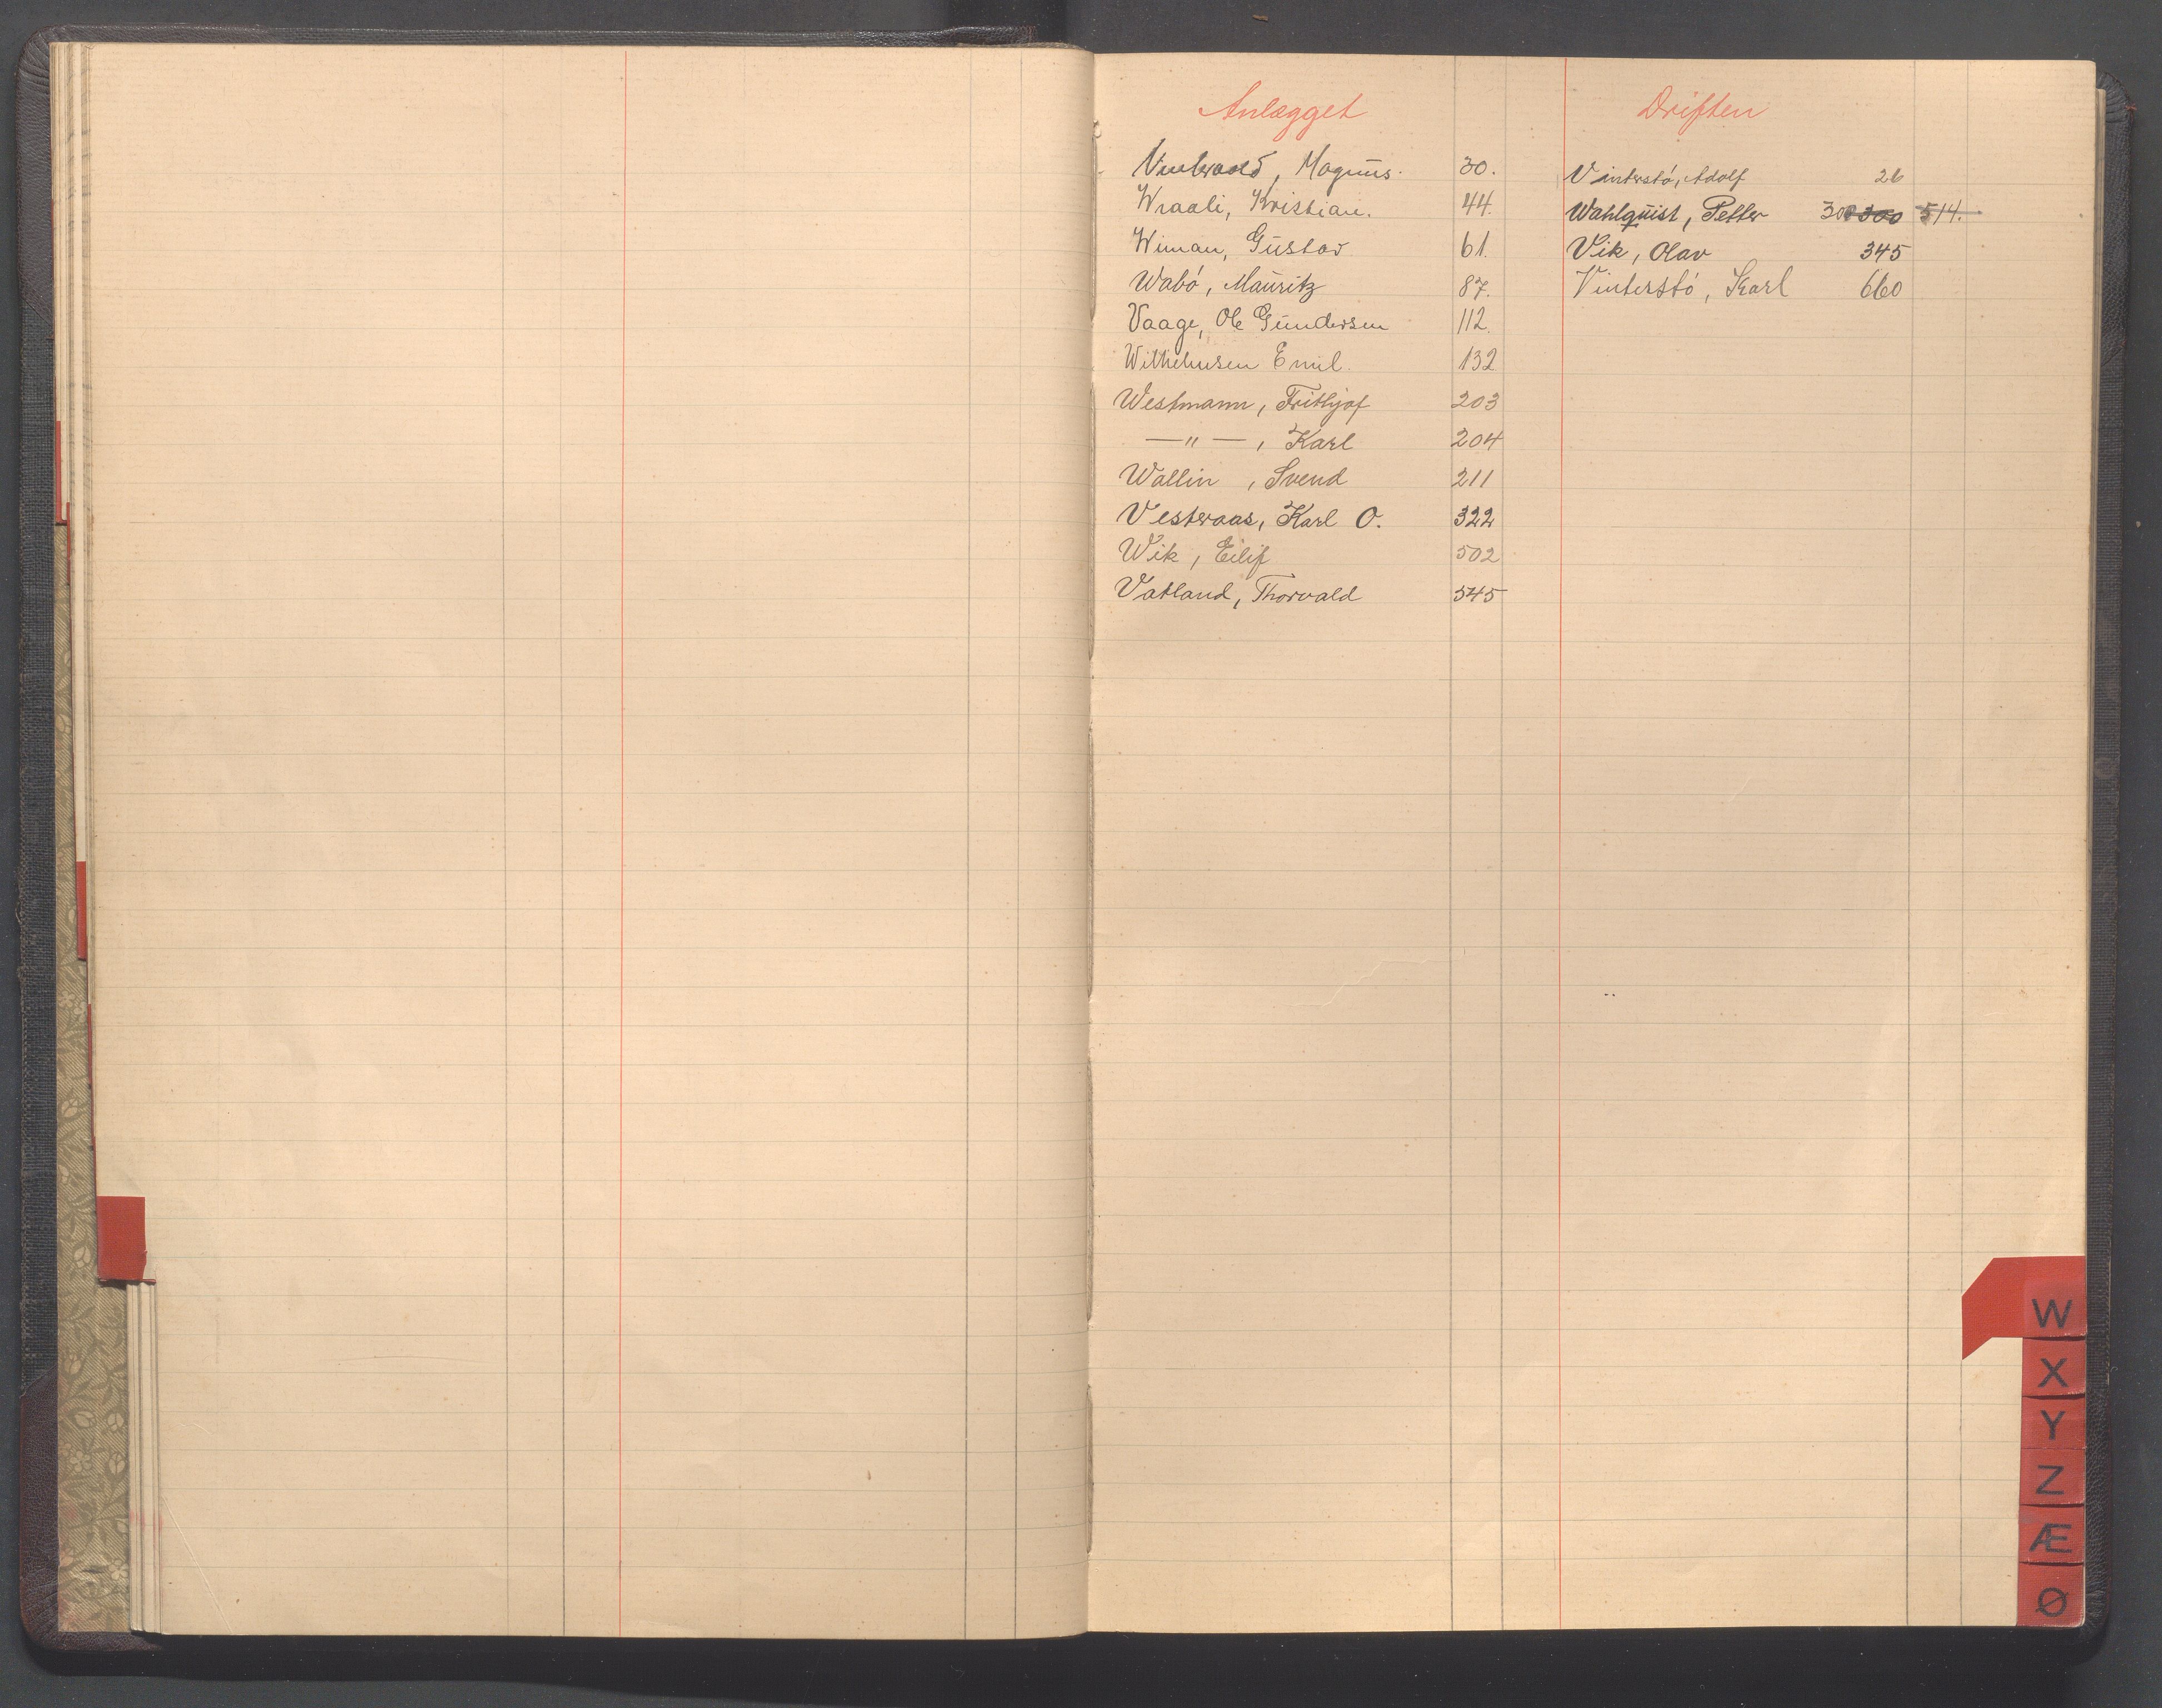 Anlægget
Magnus. 30.
Wraali, Kristian. 44.
Wiman, Gustav 61.
Wabó, Mauritz 87.
Vaage, Ole Gundersen 112.
Wilhelmsen Emil. 132
Westmann, Frithjof 203
—"—, Karl 204
Wallin, Svend 211
Vesteraas, Karl O. 322
Wik, Eilif 502
Vatland, Thorvald 545
Driften
Vinterstó, Adolf 26
Wahlquist, Petter 300 300 514.
Vik, Olav 345
Vinterstó, Karl 660
W
X
Y
Z
Æ
Ø